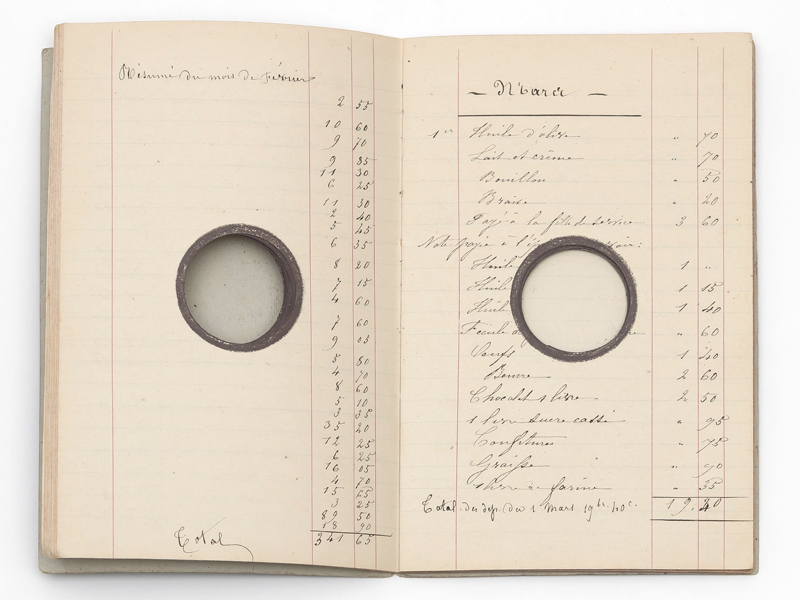 Résumé du mois de Février
2 55
10 60
9 70
9 85
11 30
6 25
11 30
2 40
5 45
6 35
8 20
7 15
4 60
7 60
9 03
5 80
4 70
8 60
5 10
3 35
35 20
12 25
6 25
16 05
4 70
15 65
3 25
89 50
18 90
Total 341 65
— Mars —
1er Huile d'olive " 70
Lait et crême " 70
Bouillon " 50
Braise " 20
Payé à la fille de service 3 60
Note payée à l'
Huile 1 "
Huile 1 15
Huile 1 40
Fecule " 60
Oeufs 1 40
Beurre 2 60
Chocolat 1 livre 2 50
1 livre sucre cassé " 95
Confitures " 75
Graisse " 90
1 livre de farine " 55
Total des dep. du 1 Mars 19fr. 40c. 19.40